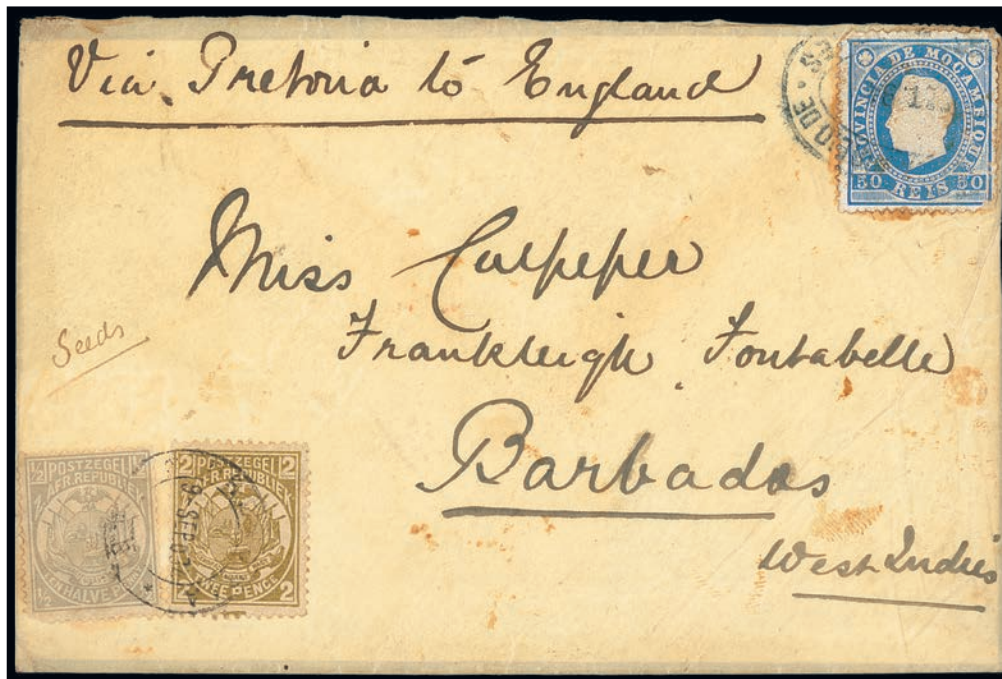 Via Pretoria to England
PROVINCIA DE MOÇAMBIQUE
50 REIS 50
Miss Culpeper
Frankleigh Fontabelle
Barbados
West Indies
Seeds
½ POSTZEGEL
AFR. REPUBLIEK
2 POSTZEGEL 2
AFR. REPUBLIEK
9-SEP
2 TWEE PENCE 2